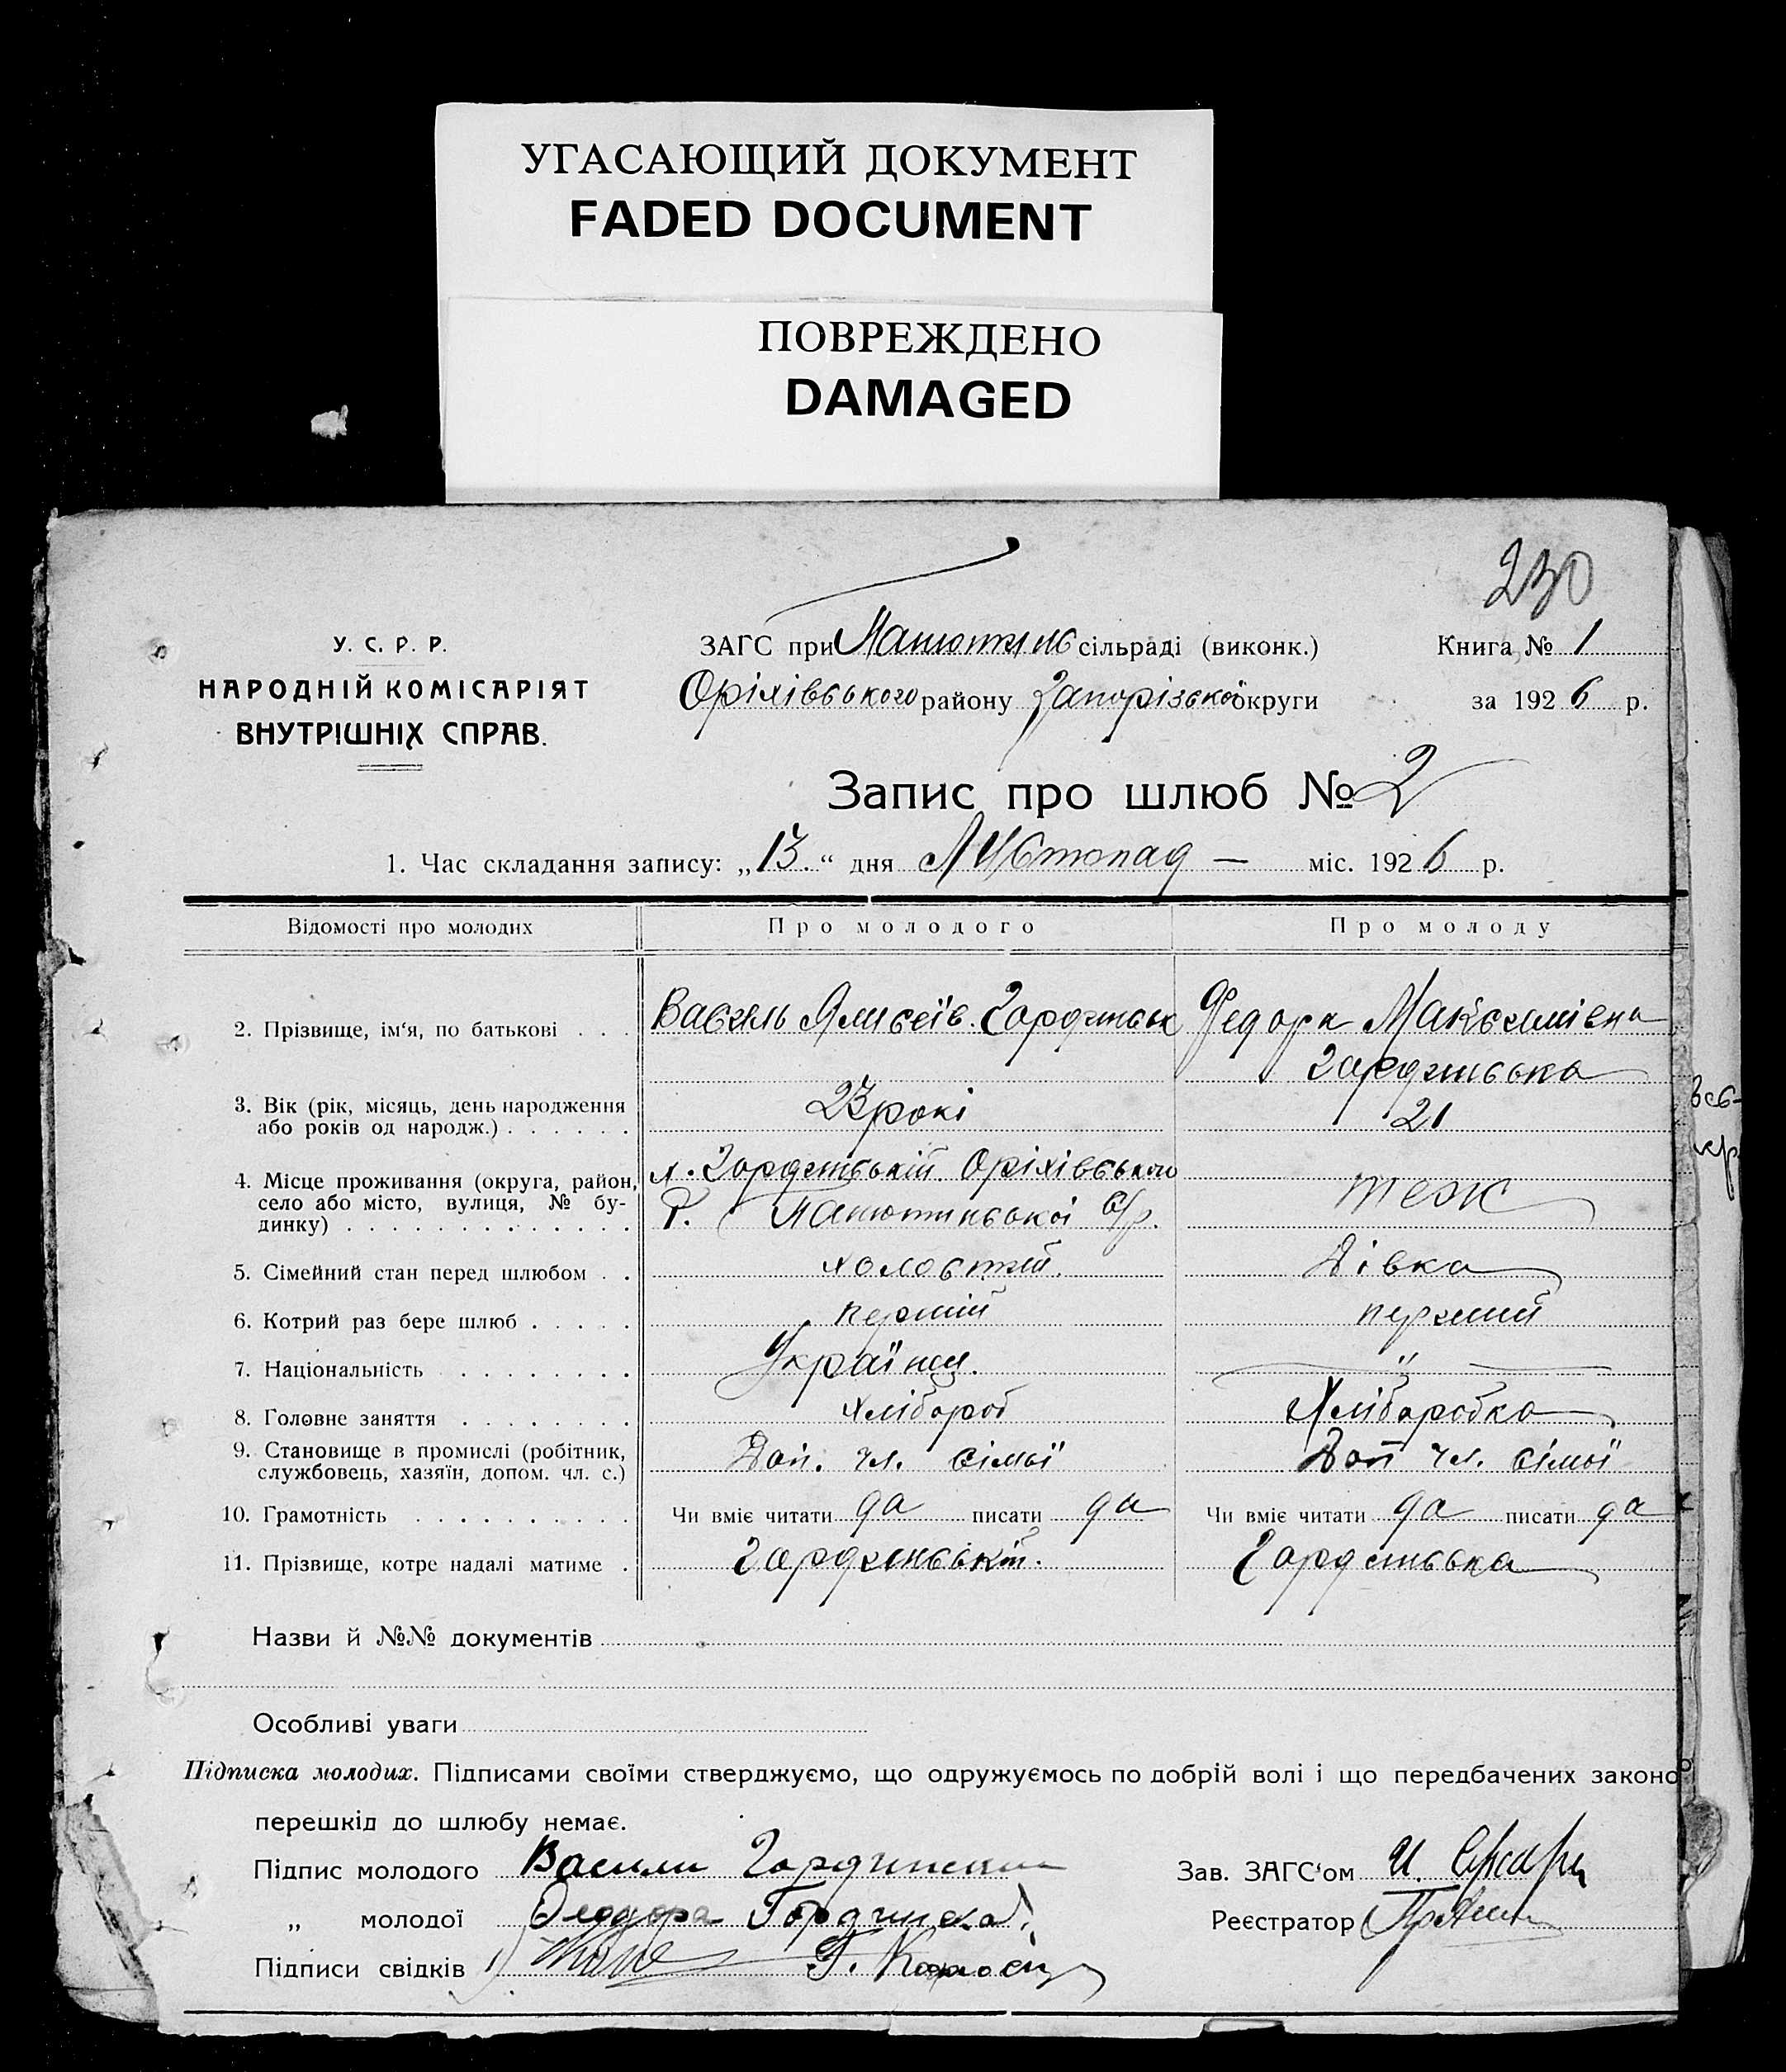 УГАСАЮЩИЙ ДОКУМЕНТ
FADED DOCUMENT
ПОВРЕЖДЕНО
DAMAGED
230
У. С. Р. Р.
НАРОДНІЙ КОМІСАРІЯТ
ВНУТРІШНІХ СПРАВ.
ЗАГС при сільраді (виконк.)
Оріхівського району Запорізької округи
Книга № 1
за 1926 р.
Запис про шлюб № 2
1. Час складання запису: „13.“ дня Листопад — міс. 1926 р.
Відомості про молодих Про молодого Про молоду
2. Прізвище, ім‘я, по батькові . . . Василь Гардинськ Федора Максимівна
Гардинська
3. Вік (рік, місяць, день народження
або років од народж.) . . . . . . 23 рокі 21
4. Місце проживання (округа, район,
село або місто, вулиця, № будинку) . . . . . . . . . . . . . х. Гардинській Оріхівського
Р. с/р. теж
5. Сімейний стан перед шлюбом . . холостий. Дівка
6. Котрий раз бере шлюб . . . . . перший перший
7. Національність . . . . . . . . Українц. — „ —
8. Головне заняття . . . . . . . . Хлібороб Хліборобка
9. Становище в промислі (робітник,
службовець, хазяїн, допом. чл. с.) Доп. чл. сімьї Доп чл. сімьї
10. Грамотність . . . . . . . . . . Чи вміє читати да писати да Чи вміє читати да писати да
11. Прізвище, котре надалі матиме . Гардинський. Гардинська
Назви й №№ документів
Особливі уваги
Підписка молодих. Підписами своїми стверджуємо, що одружуємось по добрій волі і що передбачених законо
перешкід до шлюбу немає.
Підпис молодого Васили Гардински
Зав. ЗАГС‘ом И.
„ молодої Феодора Гординска
Реєстратор
Підписи свідків